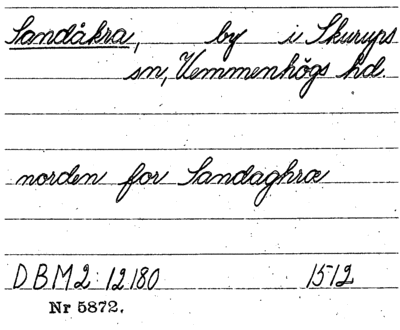 Sandåkra, by i Skurups
sn, Vemmenhögs hd.
norden for Sandaghræ
DBM2:12180 1512
Nr 5872.